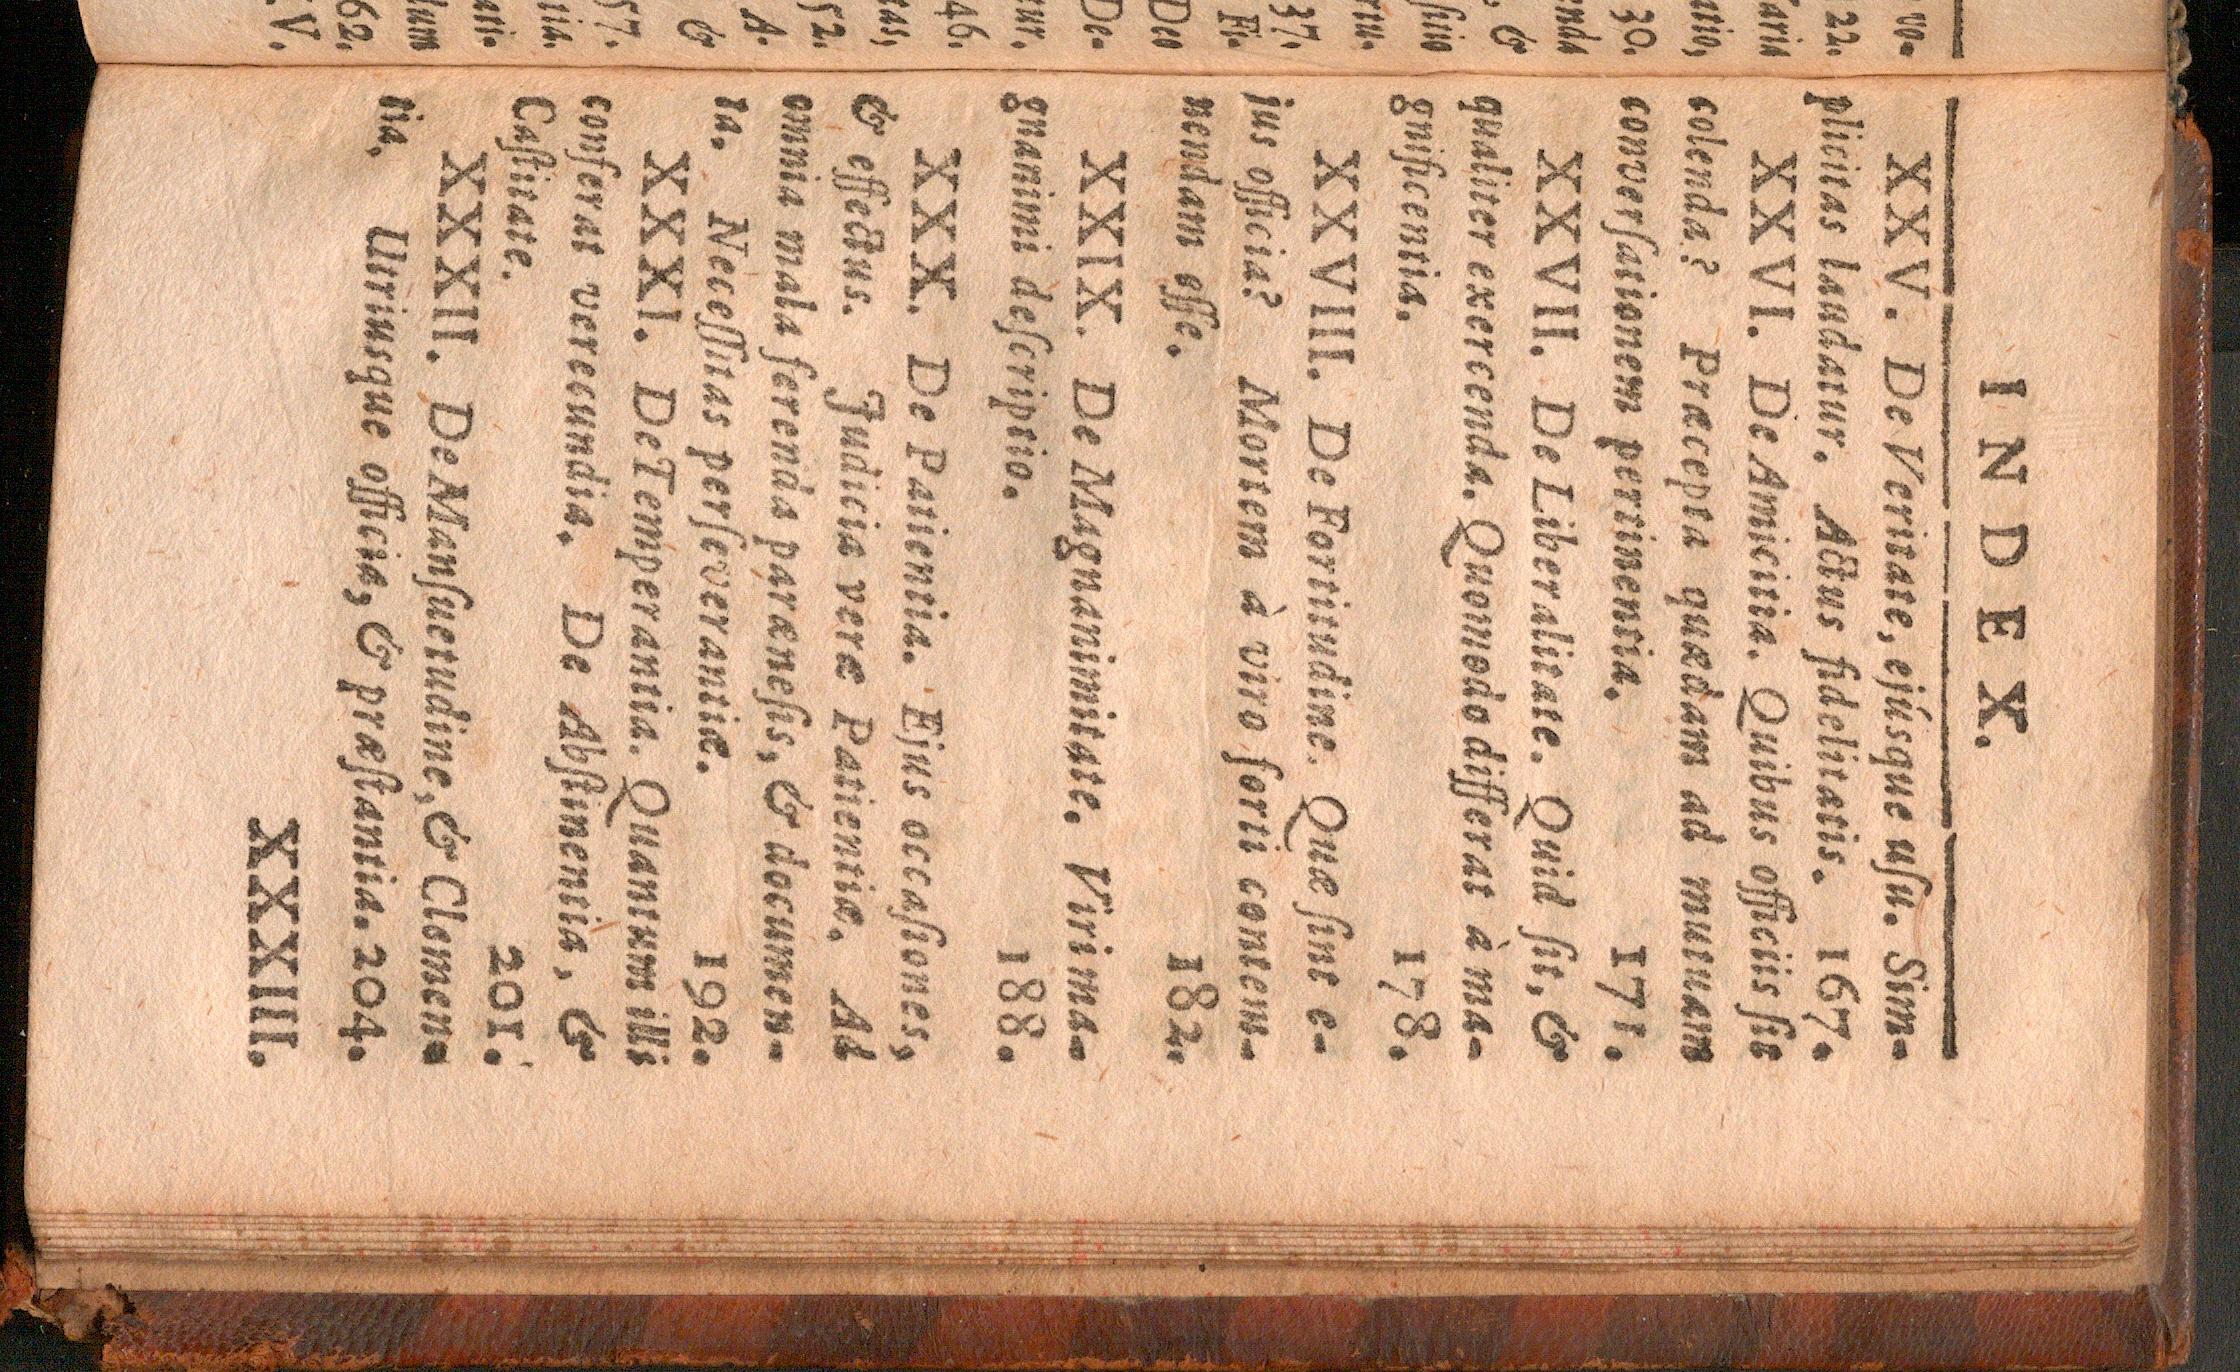 INDEX.
XXV. De Veritate, ejúsque uſu. Sim-
plicitas laudatur. Actus fidelitatis. 167.
XXVI. De Amicitia. Quibus officiis ſit
colenda? Præcepta quædam ad mutuam
converſationem pertinentia. 171.
XXVII. De Liberalitate. Quid ſit, &
qualiter exercenda. Quomodo differat à ma-
gnificentia. 178.
XXVIII. De Fortitudine. Quæ ſint e-
jus officia? Mortem à viro forti contem-
nendam eſſe. 182.
XXIX. De Magnanimitate. Viri ma-
gnanimi deſcriptio. 188.
XXX. De Patientia. Ejus occaſiones,
& effectus. Judicia veræ Patientiæ. Ad
omnia mala ferenda paræneſis, & documen-
ta. Neceſſitas perſeverantiæ. 192.
XXXI. De Temperantia. Quantum illi
conferat verecundia. De Abſtinentia, &
Caſtitate. 201.
XXXII. De Manſuetudine, & Clemen-
tia, Utriusque officia, & præſtantia. 204.
XXXIII.
vo-
22.
30.
&
ſuo
37.
Fi-
Deo
De-
46.
52.
A.
&
57.
62.
V.